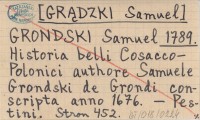 [GRĄDZKI Samuel]
GRONDSKI Samuel 1789.
Historia belli Cosacco-
Polonici authore Samuele
Grondski de Grondi con-
scripta anno 1676. — Pes-
tini. Stron 452.